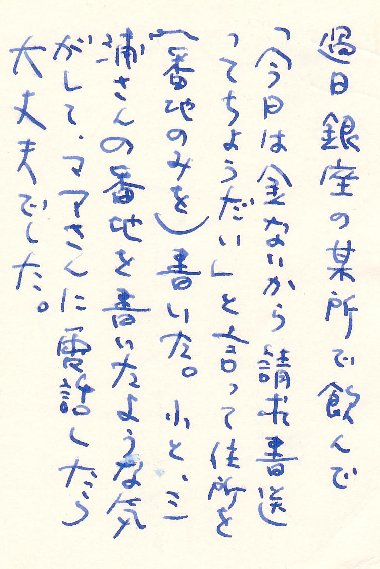 過日銀座の某所で飲んで
「今日は金ないから請求書送
ってちょうだい」と言って住所を
(番地のみを)書いた。ふと、三
浦さんの番地を書いたような気
がして、ママさんに電話したら
大丈夫でした。